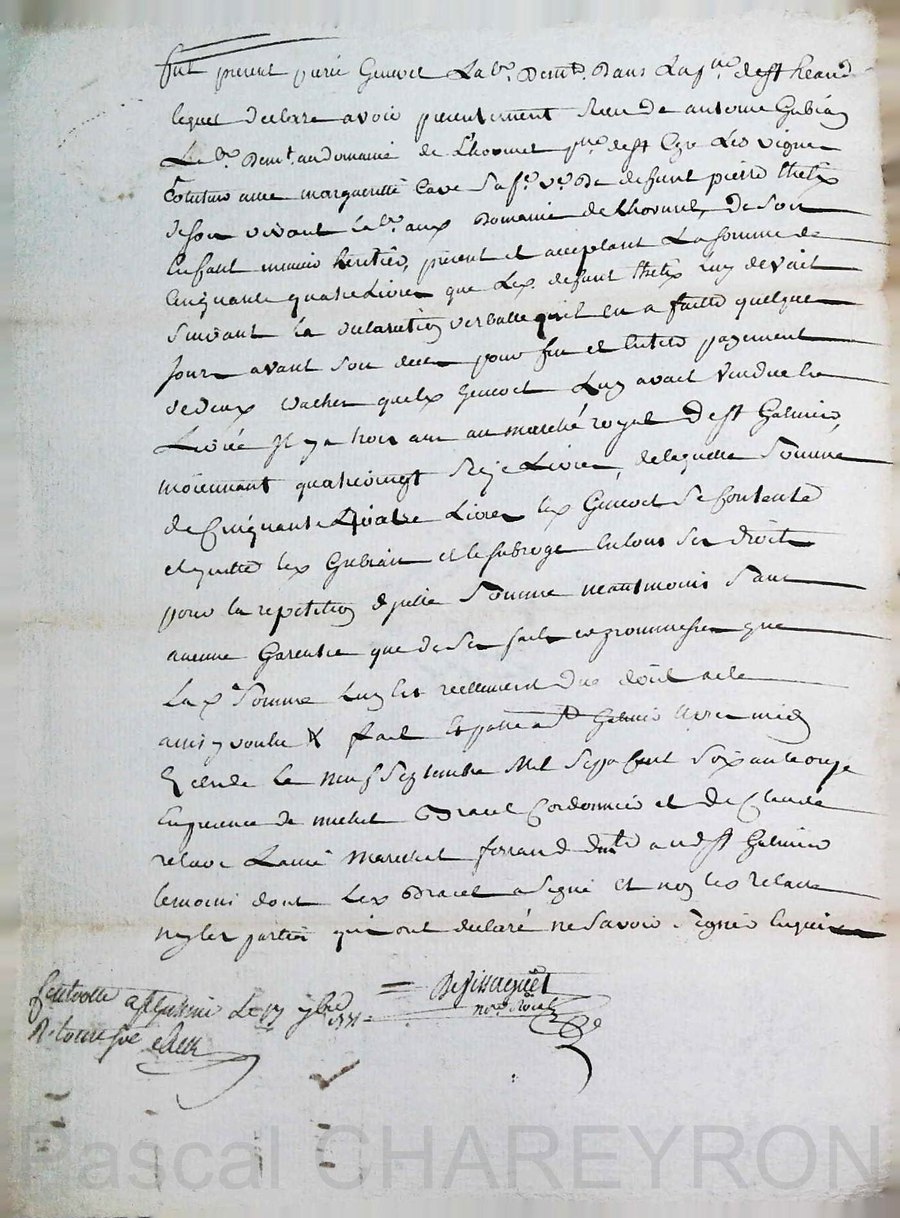 fut présent pierre Genevet Lab.r Demt. Dans La p.sse de st heand
lequel declare avoir presentement Receu de antoine Gubian
Lab.r Demt. au domaine de Lhormet p.sse de st Cyr Les vignes
Cotuteur avec margueritte Cave Sa fe. ve. De defunt pierre thelix
de son vivant Lab.r aux Domaine de Lhormet, De Son
Enfant mineur heritier, présent et acceptant La Somme de
Cinquante quatre Livres que Led. defunt thelix Luy devait
Suivant La declaration verballe qu'il en a faitte quelque
Jours avant Son deces pour fin et Entier payement
de deux vaches que led. Genevet Luy avait vendue et
Livrée Il y a trois ans au marché royal de st Galmier,
moiennant quatrevingt Seize Livres, de laquelle Somme
de Cinquante Quatre Livres led. Genevet Se Contente
et quitte led. Gubian et le Subroge en tous Ses droits
pour la repetition d'icelle Somme neantmoins Sans
aucune Garentie que de Ses faits et promesses que
La d. Somme Luy est reellement due dont acte
ainsy voulu & fait et passé a st Galmier avant midy
Le neuf Septembre Mil Sept Cent Soixante onze
En presence de michel Bravet Cordonnier et De Claude
relave Lainé Marechal ferrand demt. aud. st Galmier
temoins dont Led. Bravet a Signé et non led. relave
ny les parties qui ont declaré ne Savoir Signer Enquis
Controllé a st Galmier Le 17 7bre 1771
R.